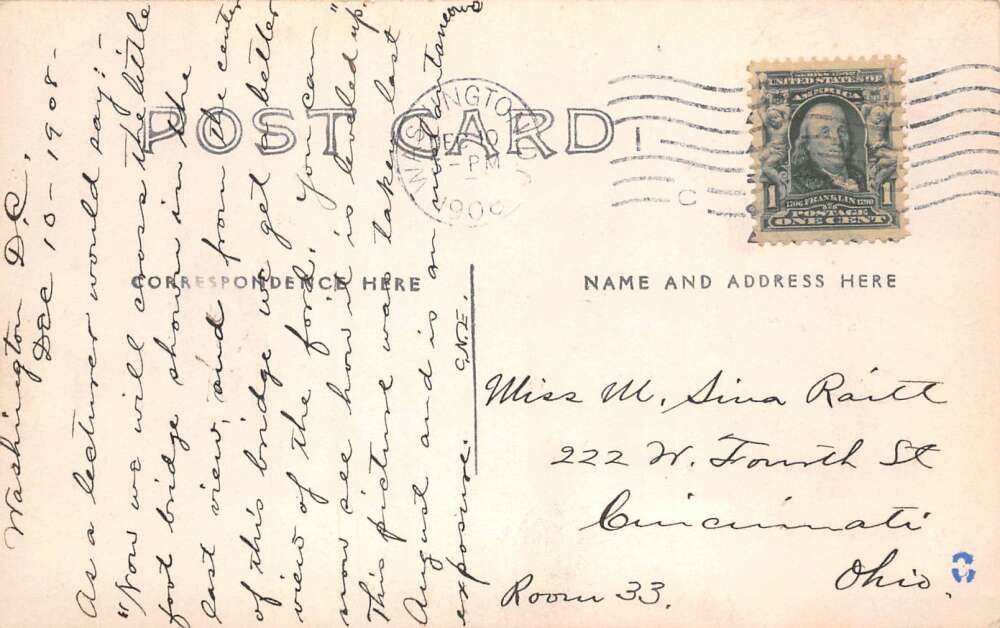 POST CARD
WASHINGTON
PM
SERIES 1902
UNITED STATES OF
AMERICA
1
1706 FRANKLIN 1790
POSTAGE
ONE CENT
CORRESPONDENCE HERE
NAME AND ADDRESS HERE
Washington D.C.
Dec 10 - 1908 -
As a lecturer would say:-
"Now we will cross the little
foot bridge shown in the
last view, and from the center
of this bridge we get a better
view of the ford." You can
now see how it is boulded up.
This picture was taken last
August and is an instantaneous
exposure. C.N.E.
Miss M. Sina Raitt
222 W. Fourth St
Cincinnati
Ohio.
Room 33.